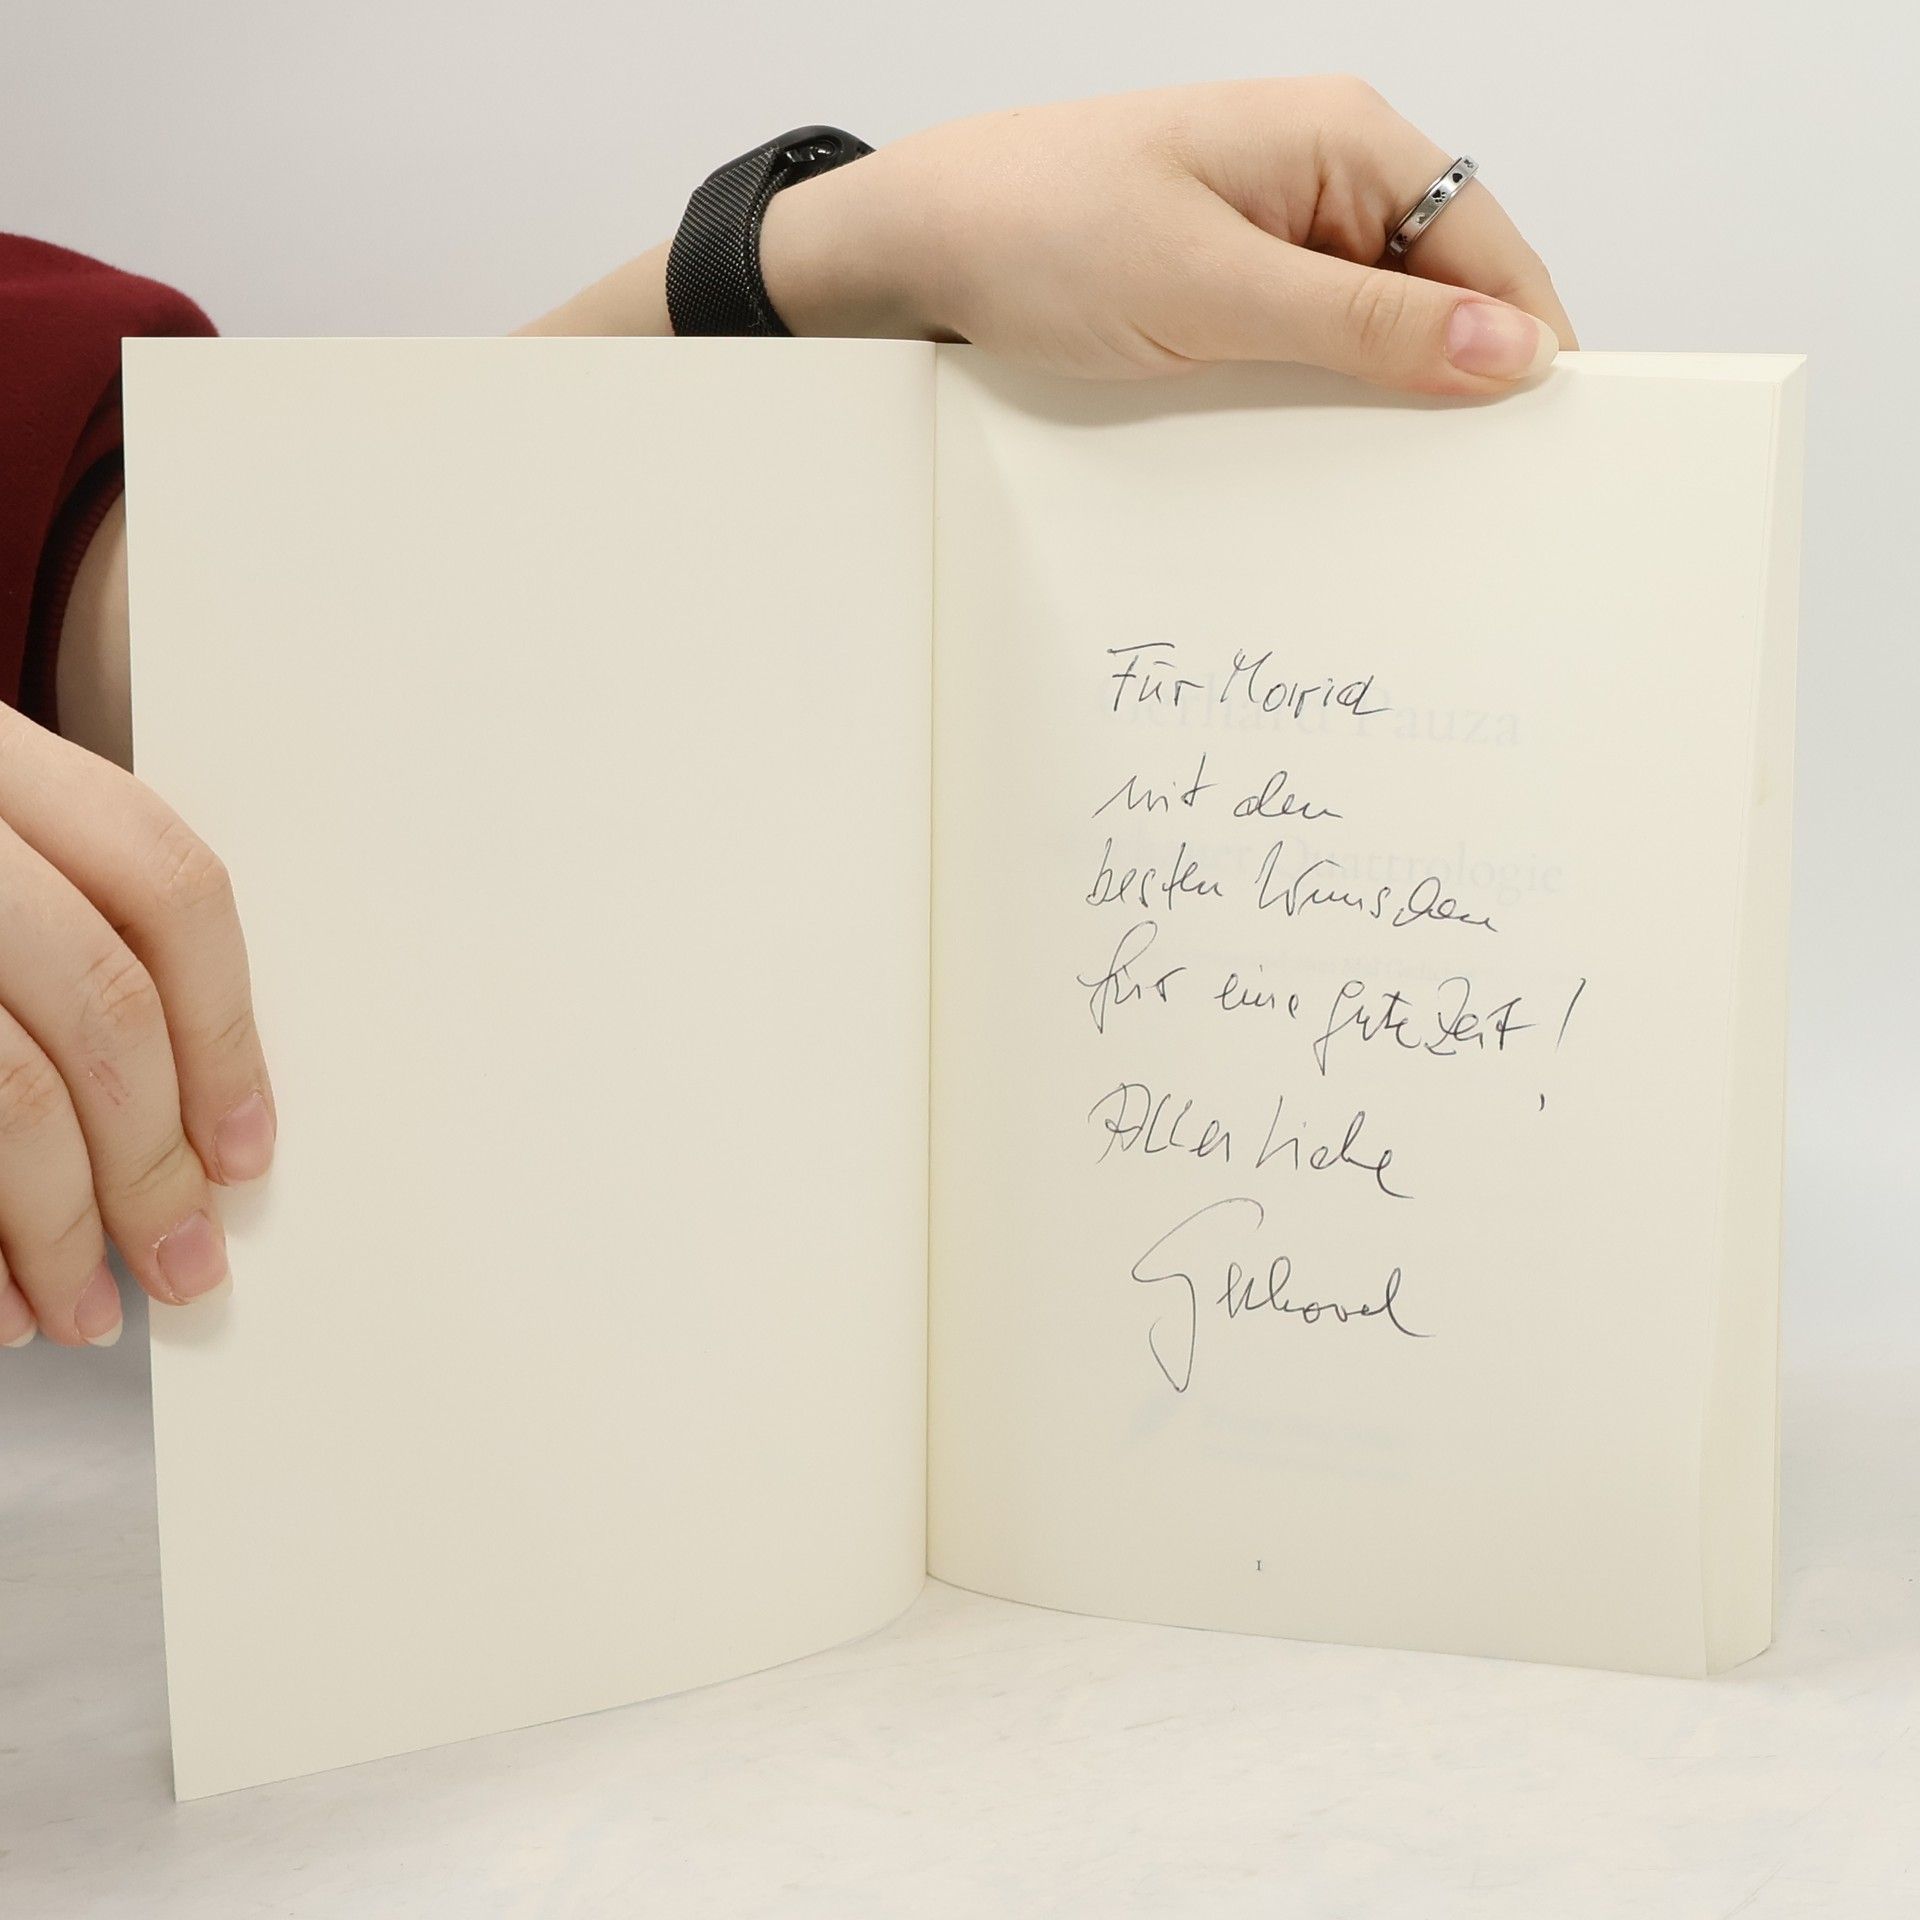 Für Marid
mit den
besten Wünschen
für eine gute Zeit!
Alles Liebe
Gerhard
Gerhard Pauza
Quattrologie
1